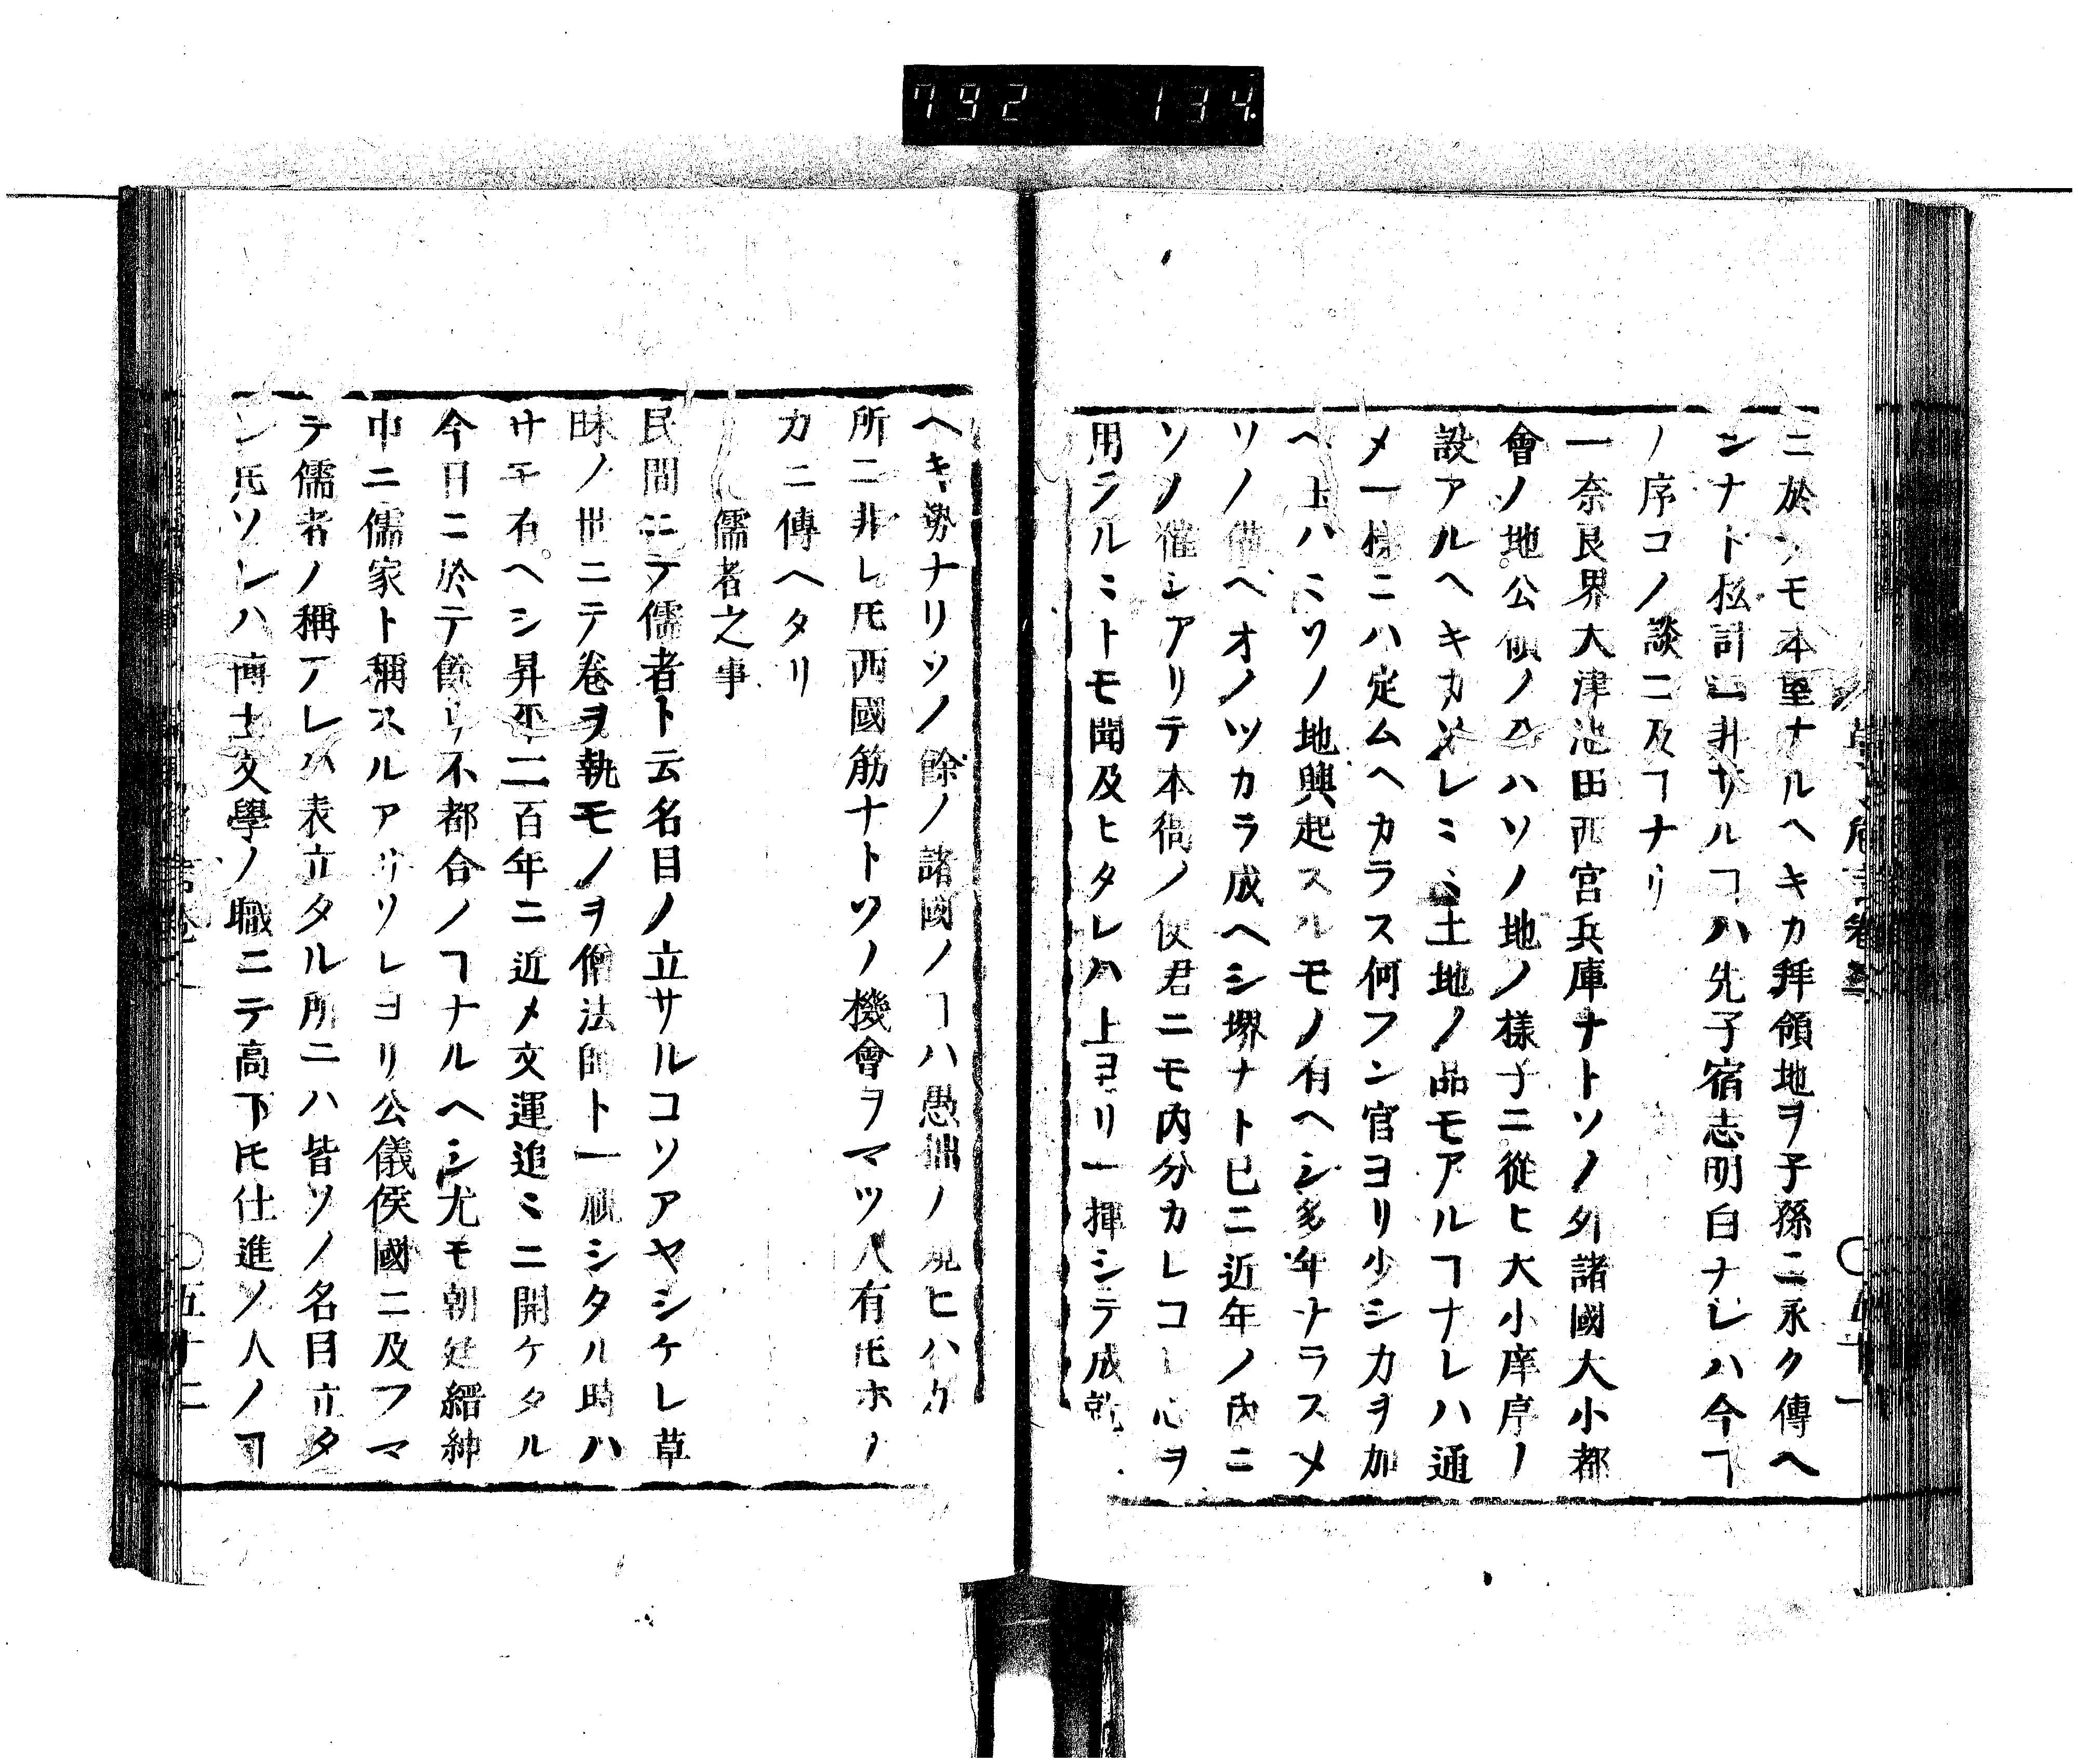 792 134
ニ於ツモ本望ナルヘキカ拜領地ヲ子孫ニ永ク傳ヘ
ンナト私計ニ非サルヿハ先子宿志明白ナレハ今ヿ
ノ序コノ談ニ及ヿナリ
一奈良界大津池田西宮兵庫ナトソノ外諸國大小都
會ノ地公領ノ分ハソノ地ノ樣子ニ從ヒ大小庠序ノ
設アルヘキカ然レ𪜈土地ノ品モアルヿナレハ通
メ一樣ニハ定ムヘカラス何フン官ヨリ少シカヲ加
ヘ上ハミソノ地興起スルモノ有ヘシ多年ナラスメ
ソノ備ヘオノツカラ成ヘシ堺ナト已ニ近年ノ内ニ
ソノ催シアリテ本衙ノ使君ニモ内分カレコレ心ヲ
用ラルミトモ聞及ヒタレハ上ヨリ一揮シテ成就
ヘキ勢ナリソノ餘ノ諸國ノヿハ愚拙ノ窺ヒハカ
所ニ非レ𪜈西國筋ナトソノ機會ヲマツ人有𪜈ホノ
カニ傳ヘタリ
儒者之事
民間ニテ儒者ト云名目ノ立サルコソアヤシケレ草
昧ノ世ニテ卷ヲ執モノヲ僧法師ト一視シタル時ハ
サモ有ヘシ昇平二百年ニ近メ文運追ミニ開ケタル
今日ニ於テ餘リ不都合ノヿナルヘシ尤モ朝廷縉紳
中ニ儒家ト稱スルアリソレヨリ公儀侯國ニ及フマ
テ儒者ノ稱アレハ表立タル所ニハ皆ソノ名目立タ
ン𪜈ソレハ博士文學ノ職ニテ高下𪜈仕進ノ人ノヿ
五十二